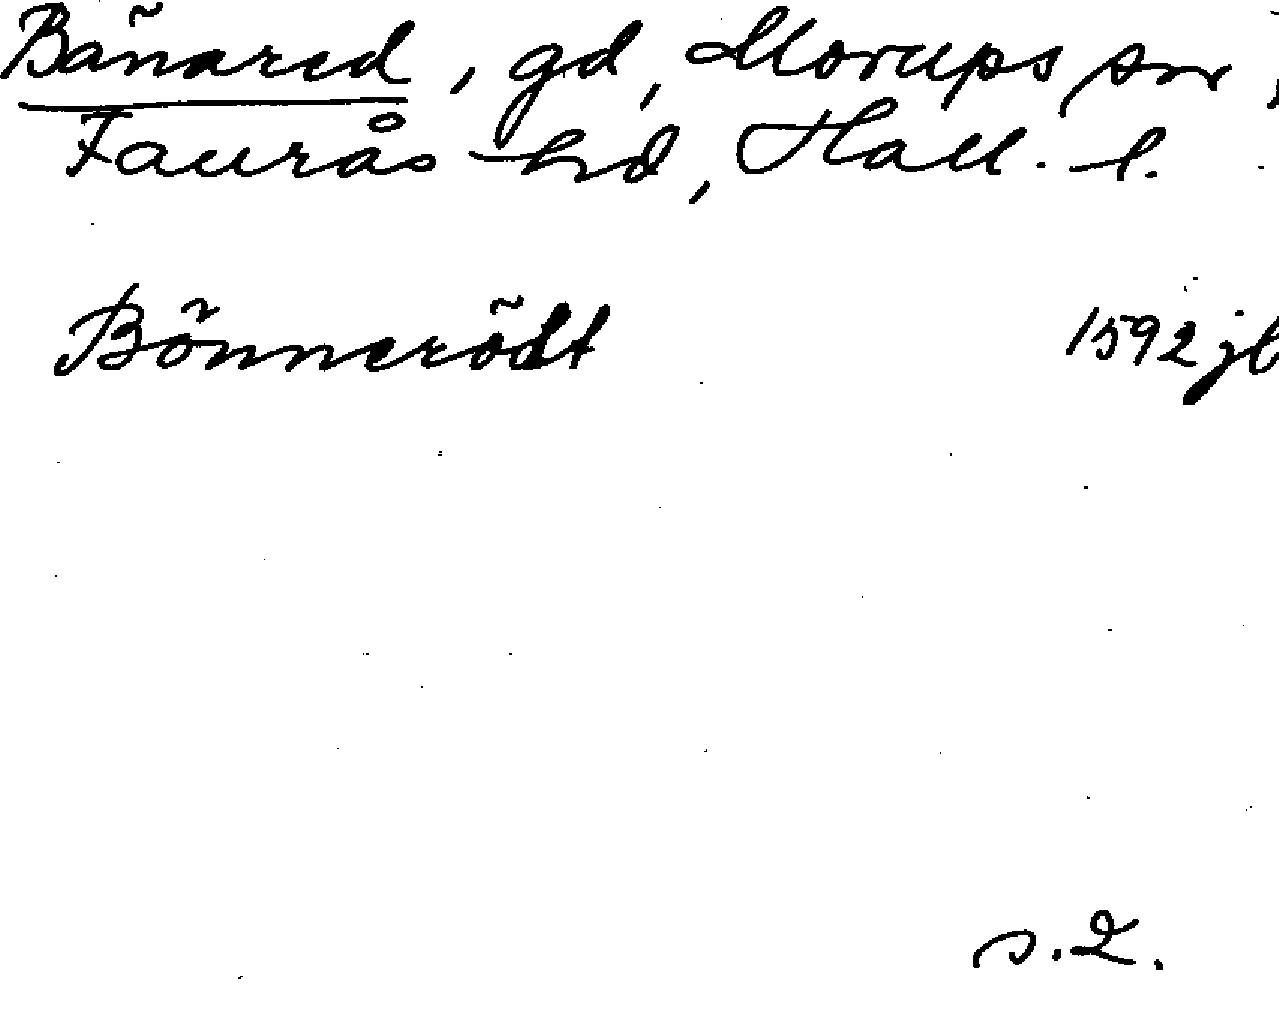 Bänared, gd, Morups sn,
Faurås hd, Hall. l.
Bönnerödt 1592 jb
s. 2.